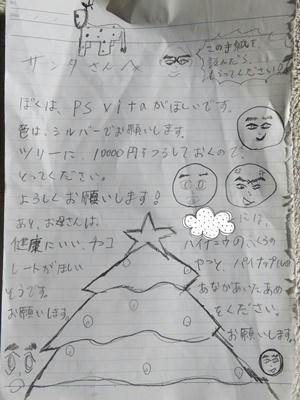 サンタさんへ
この手紙を、
読んだら、
ください!
ぼくは、PS vitaがほしいです。
色は、シルバーでお願いします。
ツリーに、10000円をつるしておくので、
とってください。
よろしくお願いします!
あと、お母さんは、
健康にいい、チョコ
レートがほしい
そうです。
お願いします。
には、
ハイチュウのふくろの
やつと、パイナップルの
あながあいたあめ
をください。
お願いします。